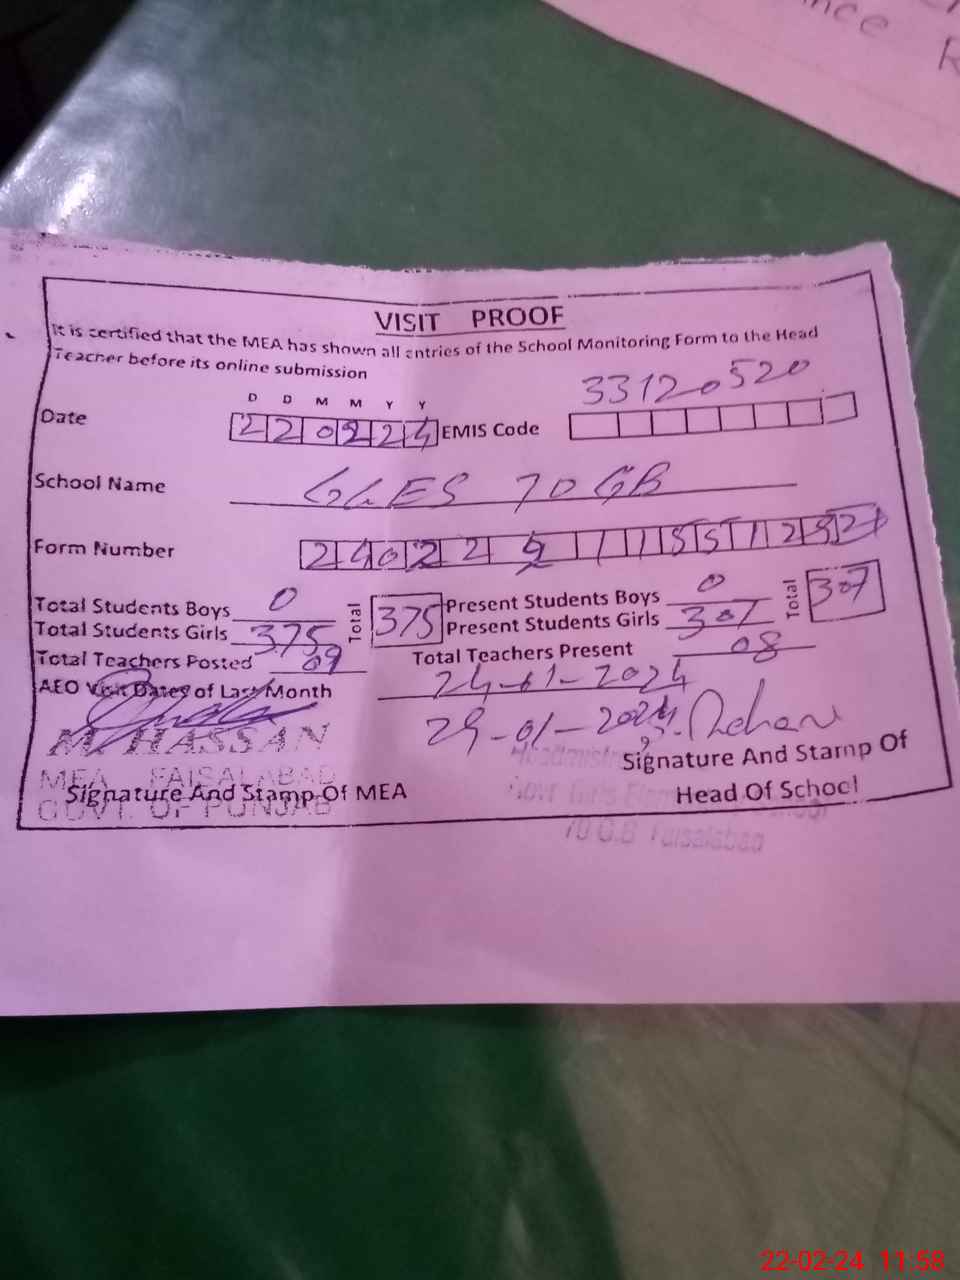 nce R
VISIT PROOF
It is certified that the MEA has shown all entries of the School Monitoring Form to the Head
Teacher before its online submission
D D M M Y Y
Date 220224 EMIS Code 33120520
School Name GGES 70 GB
Form Number
Total Students Boys 0 Total 375 Present Students Boys 0 Total 307
Total Students Girls 375 Present Students Girls 307
Total Teachers Posted 09 Total Teachers Present 08
AEO Visit Dates of Last Month 24-01-2024
29-01-2024
M. HASSAN
MEA FAISALABAD
GOVT. OF PUNJAB
Signature And Stamp Of MEA
Signature And Stamp Of
Head Of School
Headmistress
Govt Girls Elementary School
70 G.B Faisalabad
22-02-24 11:58